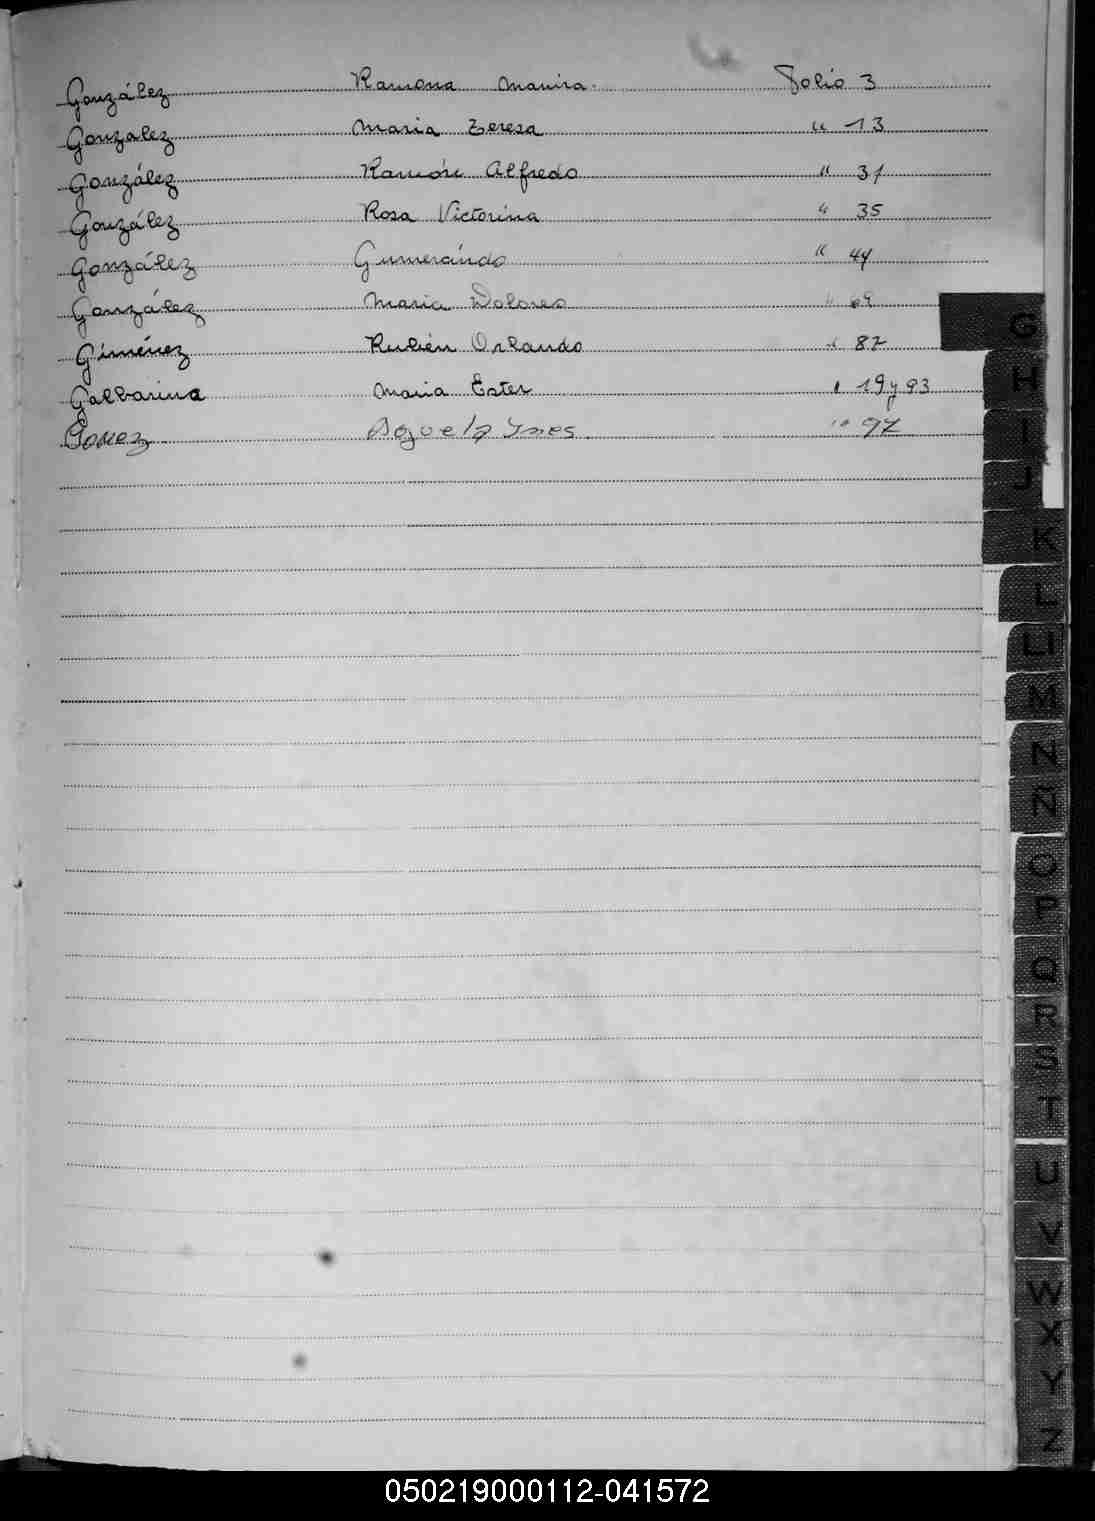 González Ramona Maura. Folio 3
González Maria Teresa " 13
González Ramón Alfredo " 31
González Rosa Victorina " 35
González Gumersindo " 44
González Maria Dolores " 69
Giménez Rubén Orlando " 82
Galbarina Maria Ester " 19 y 93
Gomez Ines " 97
G
H
I
J
K
L
Ll
M
N
Ñ
O
P
Q
R
S
T
U
V
W
X
Y
Z
050219000112-041572